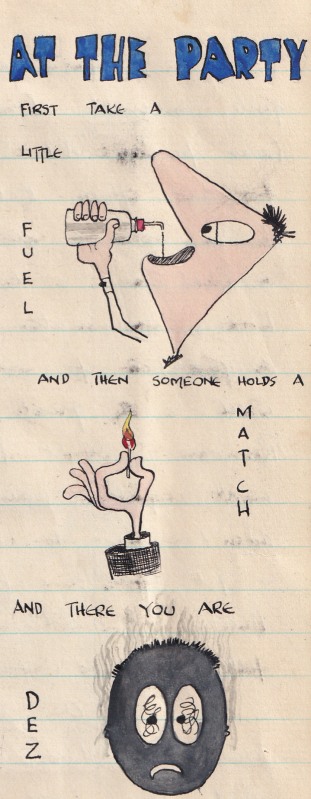 AT THE PARTY
FIRST TAKE A
LITTLE
FUEL
AND THEN SOMEONE HOLDS A
MATCH
AND THERE YOU ARE
DEZ